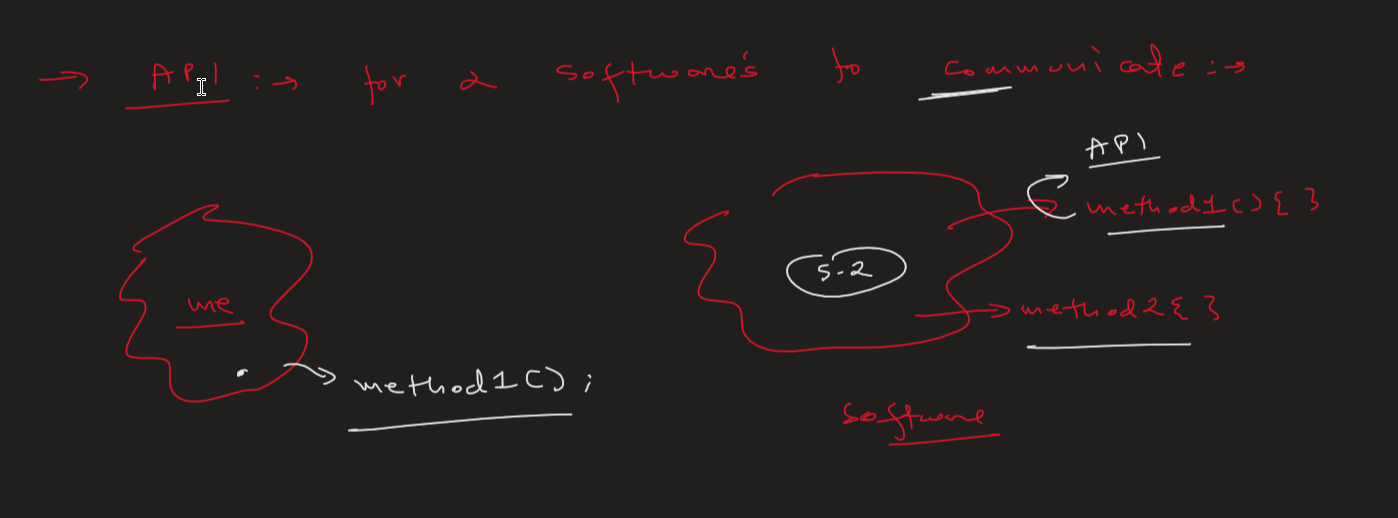 → API :→ for 2 software's to communicate :→
API
method1() { }
S-2
me
method2 { }
method1() ;
software